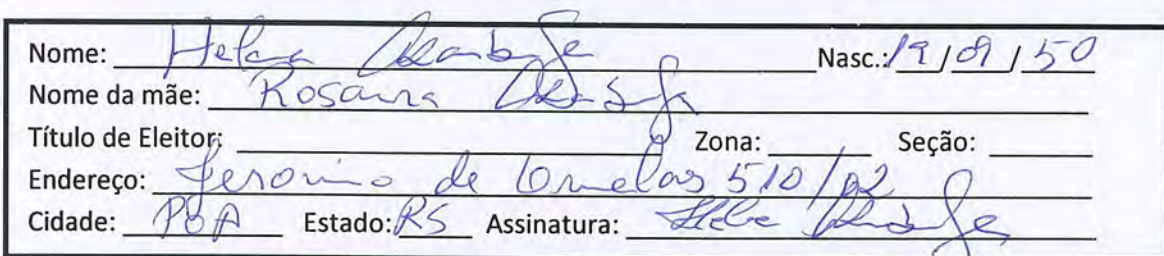 Nome: Helena Nasc.: 19/09/50
Nome da mãe: Rosaura
Título de Eleitor: Zona: Seção:
Endereço: Jeronimo de Ornelas 510/02
Cidade: POA Estado: RS Assinatura: